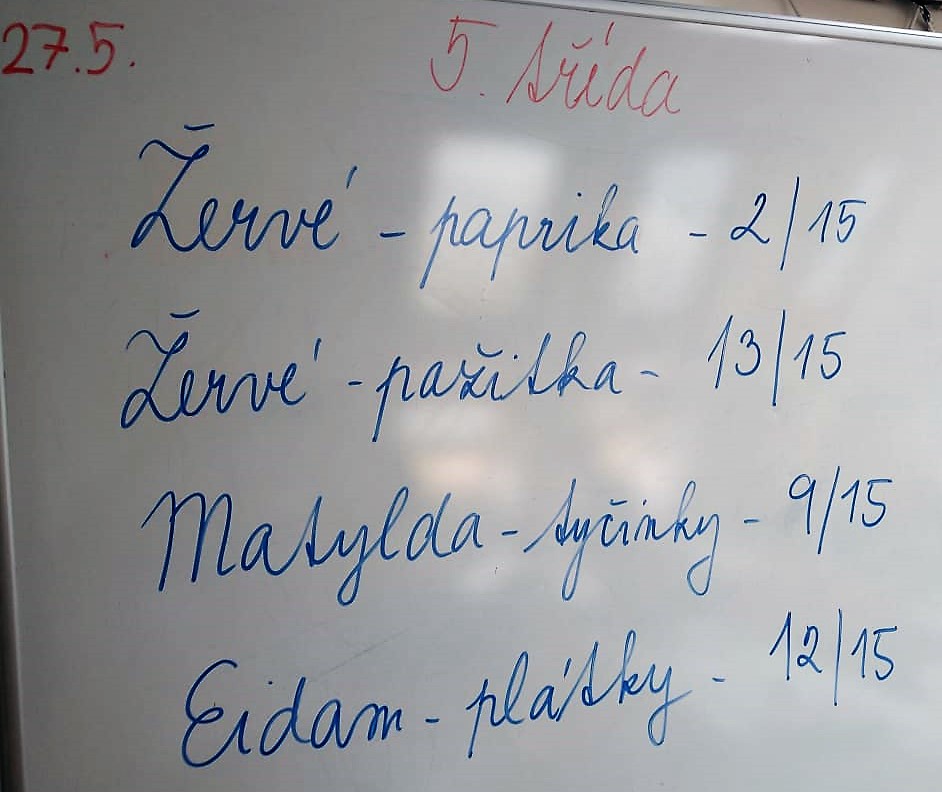 27.5. 5. třída
Žervé - paprika - 2/15
Žervé - pažitka - 13/15
Matylda - tyčinky - 9/15
Eidam - plátky - 12/15